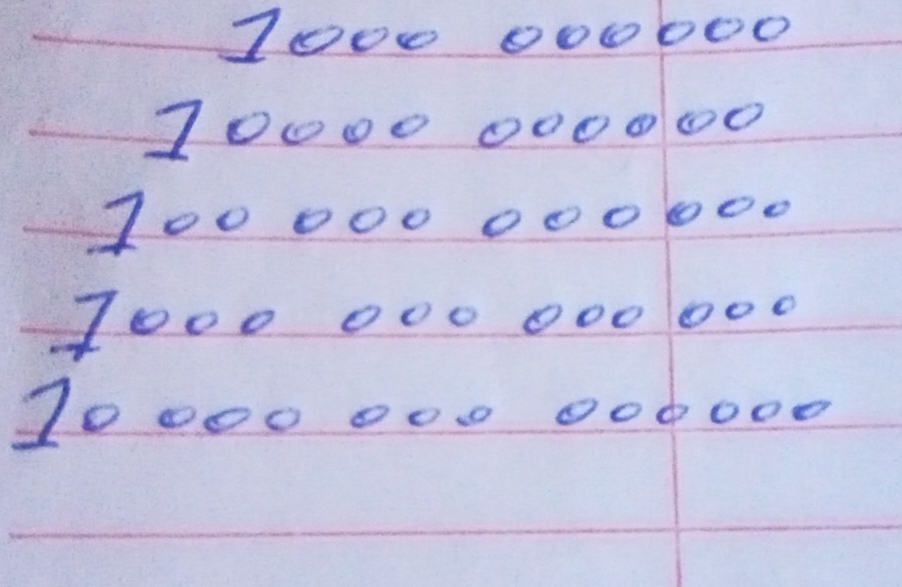 1000 000000
10000 000000
100 000 000 000
1000 000 000 000
10 000 000 000000